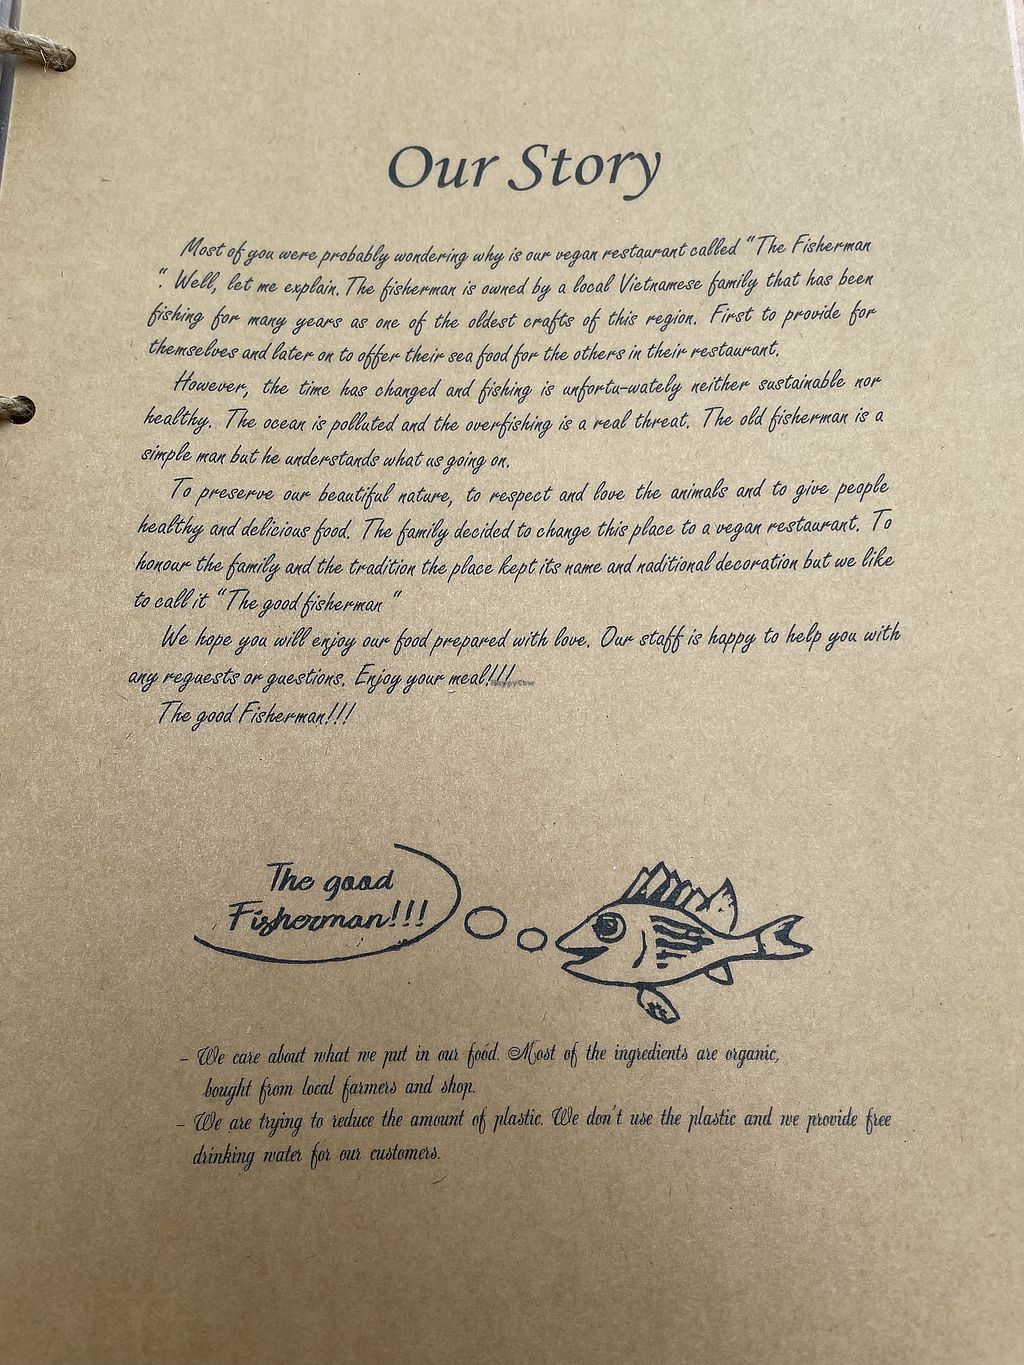 Our Story
Most of you were probably wondering why is our vegan restaurant called “The Fisherman
“. Well, let me explain. The fisherman is owned by a local Vietnamese family that has been
fishing for many years as one of the oldest crafts of this region. First to provide for
themselves and later on to offer their sea food for the others in their restaurant.
However, the time has changed and fishing is unfortu-wately neither sustainable nor
healthy. The ocean is polluted and the overfishing is a real threat. The old fisherman is a
simple man but he understands what us going on.
To preserve our beautiful nature, to respect and love the animals and to give people
healthy and delicious food. The family decided to change this place to a vegan restaurant. To
honour the family and the tradition the place kept its name and naditional decoration but we like
to call it “The good fisherman “
We hope you will enjoy our food prepared with love. Our staff is happy to help you with
any reguests or guestions. Enjoy your meal!!!
HappyCow
The good Fisherman!!!
The good
Fisherman!!!
- We care about what we put in our foód. Most of the ingredients are organic,
bought from local farmers and shop.
- We are trying to reduce the amount of plastic. We don't use the plastic and we provide free
drinking water for our customers.